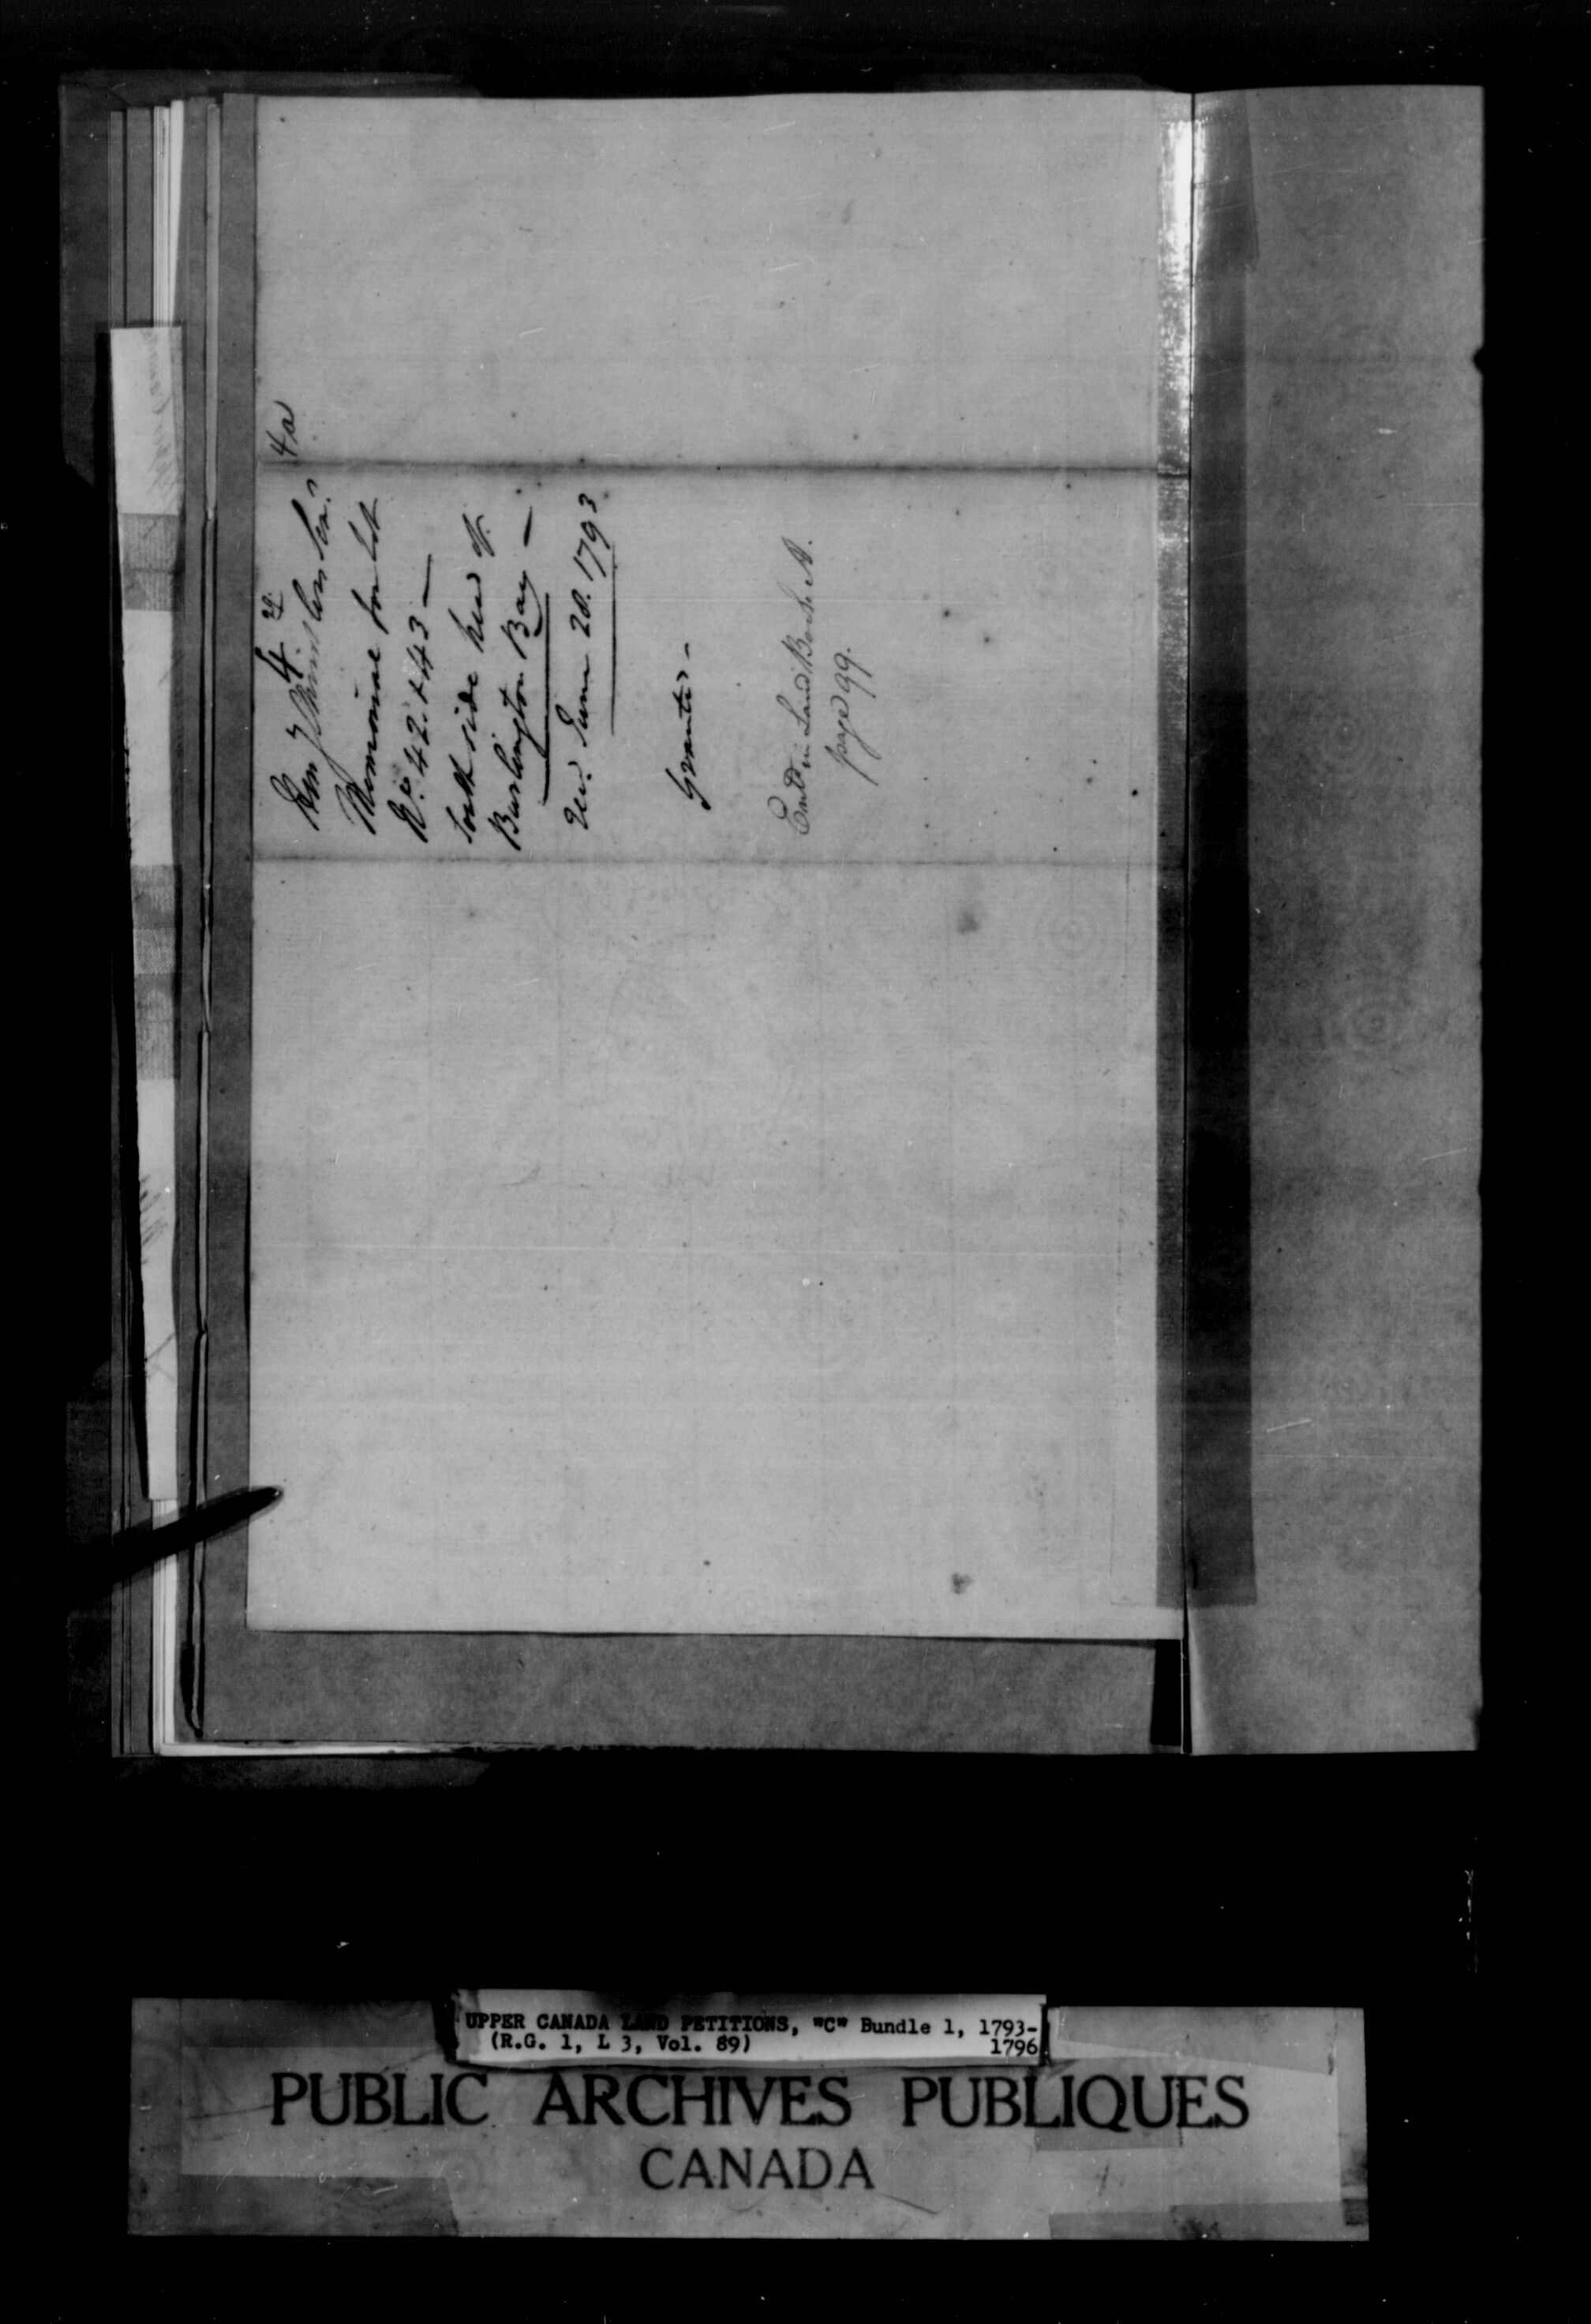 4a
4
Memorial for Lot
No. 42. & 43 —
South side head of
Burlington Bay —
Rec. June 28. 1793
Granted -
Entd. in Land Book A.
page 99.
UPPER CANADA LAND PETITIONS, "C" Bundle 1, 1793-
(R.G. 1, L 3, Vol. 89) 1796
PUBLIC ARCHIVES PUBLIQUES
CANADA